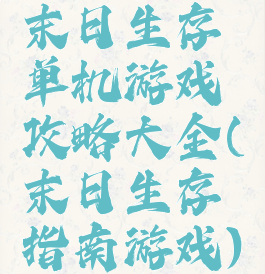 末日生存
单机游戏
攻略大全(
末日生存
指南游戏)